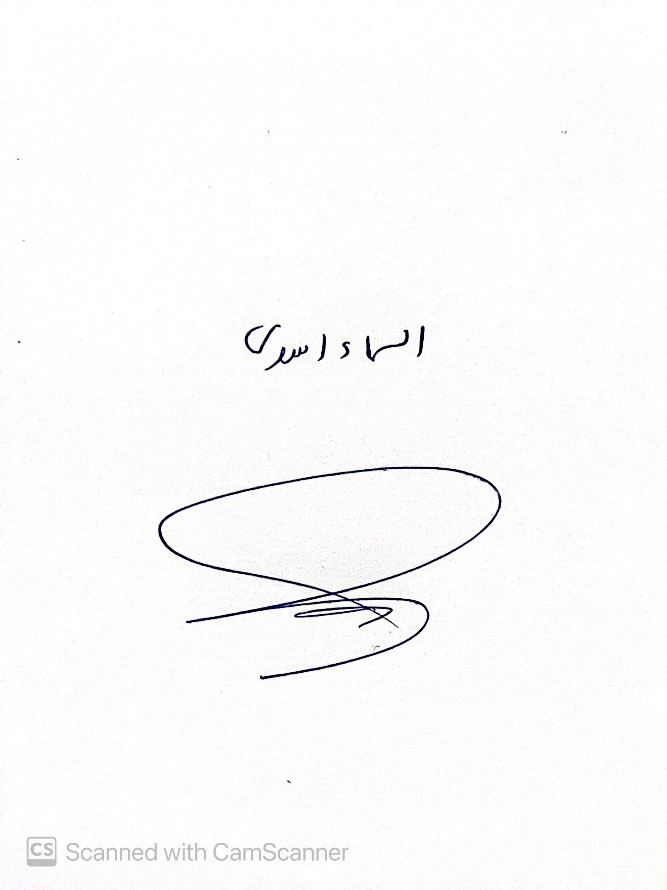 اسدی
CS Scanned with CamScanner